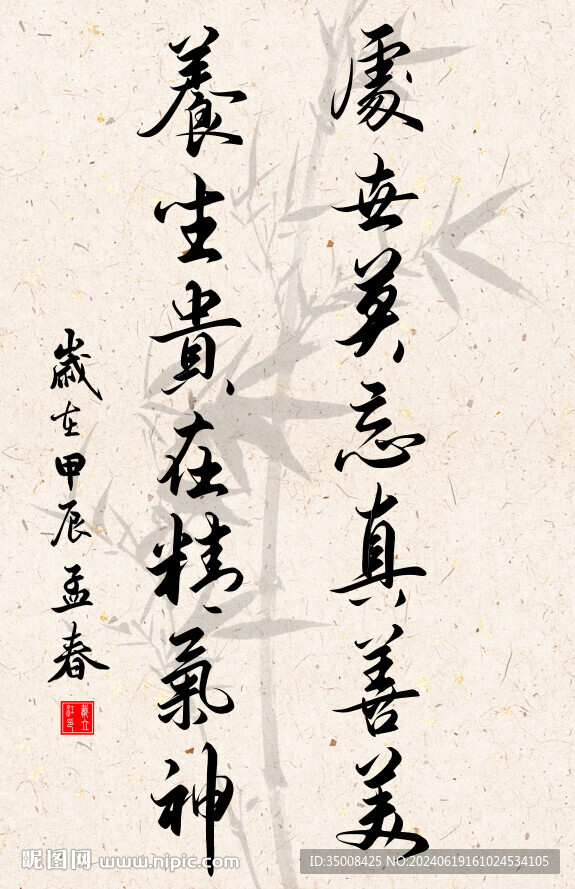 處世莫忘真善美
養生貴在精氣神
歲在甲辰孟春
昵图网 www.nipic.com
ID:35008425 NO:20240619161024534105